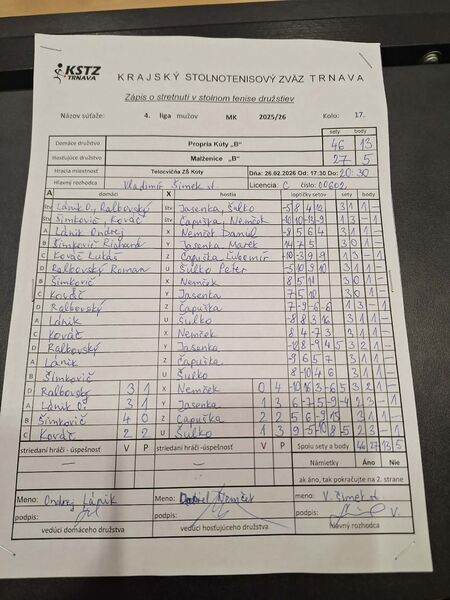 KSTZ TRNAVA KRAJSKÝ STOLNOTENISOVÝ ZVÄZ TRNAVA
Zápis o stretnutí v stolnom tenise družstiev
Názov súťaže: 4. liga mužov MK 2025/26 Kolo: 17.
sety body
Domáce družstvo Propria Kúty „B“ 46 13
Hosťujúce družstvo Malženice „B“ 27 5
Hracia miestnosť Telocvičňa ZŠ Kúty Dňa: 26.02.2026 Od: 17:30 Do: 20:30
Hlavný rozhodca Vladimír Šimek st Licencia: C číslo: 00602
A domáci X hostia loptičky setov sety body
Štv Lánik O., Ralbovský Štv Jasenka, Šulko -5 8 4 12 3 1 1 –
Štv Šimkovič, Kováč Štv Čapuška, Nemček -10 10 -13 -9 1 3 – 1
A Lánik Ondrej X Nemček Daniel -8 5 6 4 3 1 1 –
B Šimkovič Richard Y Jasenka Marek 14 7 5 3 0 1 –
C Kováč Lukáš Z Čapuška Ľubomír -10 -3 9 -9 1 3 – 1
D Ralbovský Roman U Šulko Peter -5 10 9 10 3 1 1 –
B Šimkovič X Nemček 8 5 11 3 0 1 –
C Kováč Y Jasenka 7 5 10 3 0 1 –
D Ralbovský Z Čapuška 7 -9 -6 -6 1 3 – 1
A Lánik U Šulko -8 8 3 16 3 1 1 –
C Kováč X Nemček 8 4 -7 3 3 1 1 –
D Ralbovský Y Jasenka -12 8 -9 4 5 3 2 1 –
A Lánik Z Čapuška -9 6 5 7 3 1 1 –
B Šimkovič U Šulko 8 -10 4 6 3 1 1 –
D Ralbovský 3 1 X Nemček 0 4 -10 16 3 -6 5 3 2 1 –
A Lánik O. 3 1 Y Jasenka 1 3 6 -7 5 -9 -4 2 3 – 1
B Šimkovič 4 0 Z Čapuška 2 2 5 6 -9 15 3 1 1 –
C Kováč 2 2 U Šulko 1 3 9 -5 -10 8 5 2 3 – 1
striedaní hráči - úspešnosť V P striedaní hráči - úspešnosť V P Spolu sety a body 46 27 13 5
Námietky Áno Nie
ak áno, tak pokračujte na 2. strane
Meno: Ondrej Lánik Meno: Daniel Nemček meno: V. Šimek st
podpis: podpis: podpis:
vedúci domáceho družstva vedúci hosťujúceho družstva hlavný rozhodca